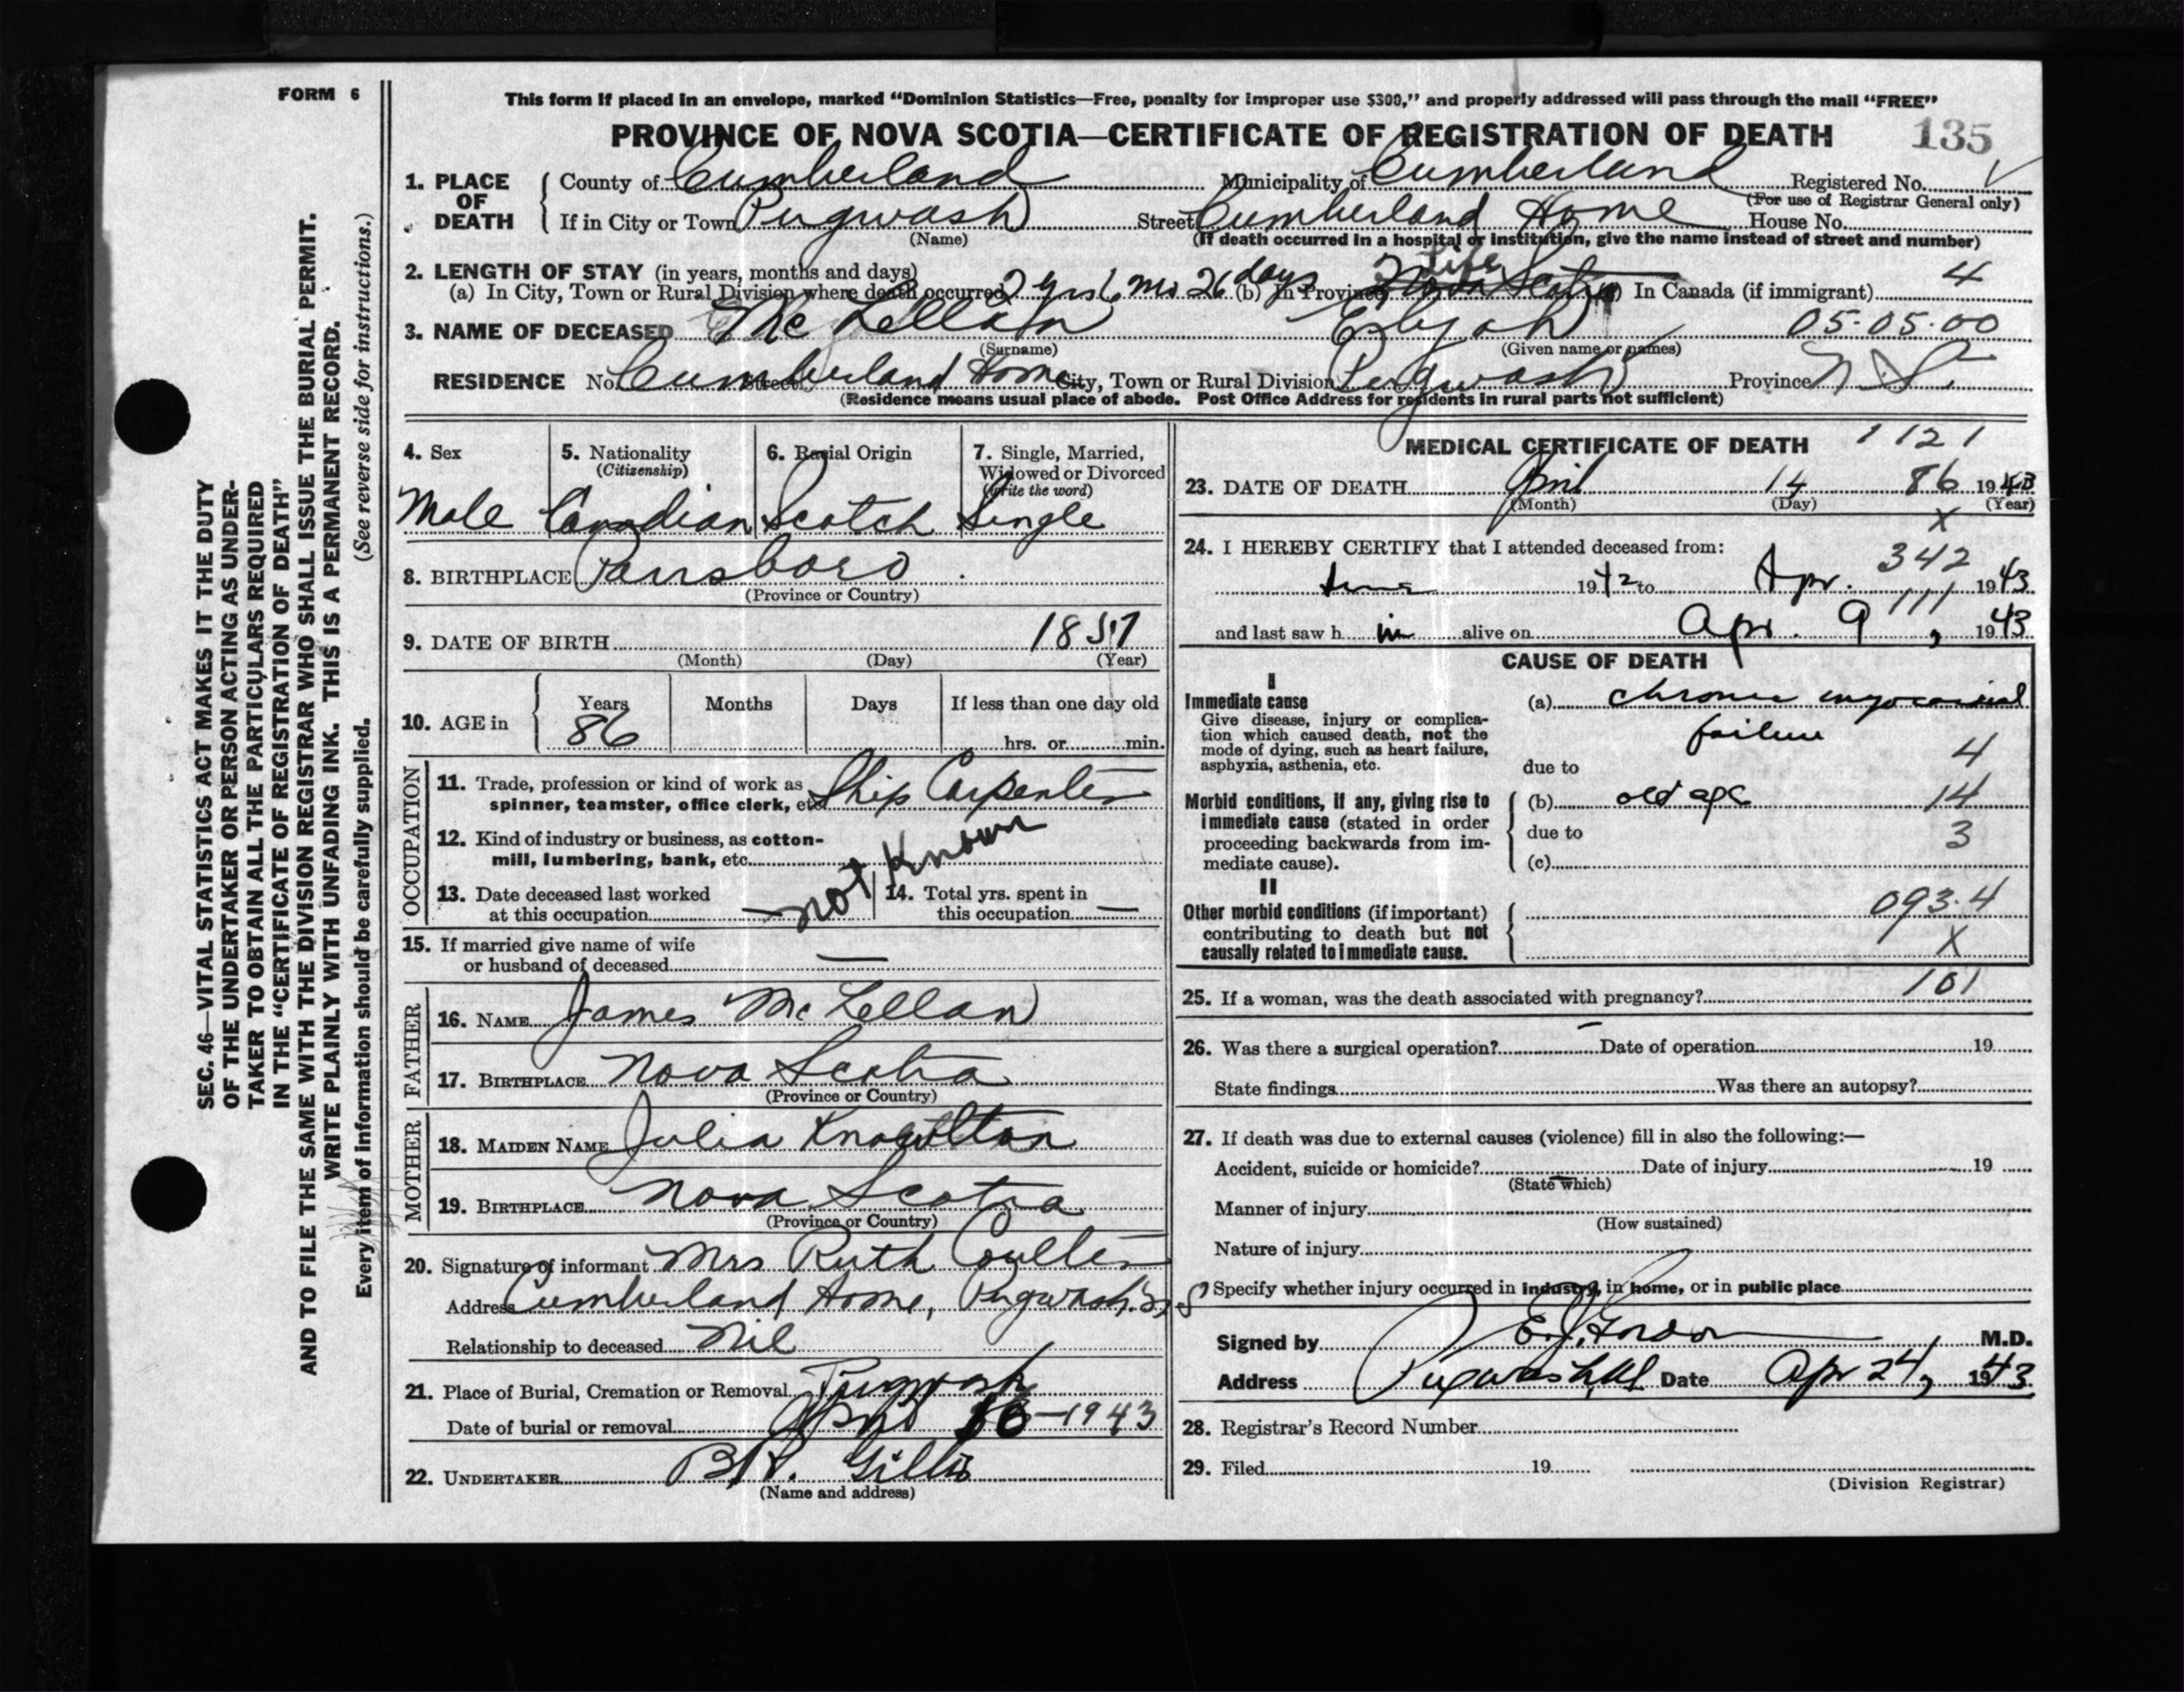 FORM 6
This form if placed in an envelope, marked “Dominion Statistics—Free, penalty for improper use $300,” and properly addressed will pass through the mail “FREE”
PROVINCE OF NOVA SCOTIA—CERTIFICATE OF REGISTRATION OF DEATH 135
1. PLACE OF DEATH County of Cumberland Municipality of Cumberland Registered No.
(For use of Registrar General only)
If in City or Town Pugwash Street Cumberland Home House No.
(Name) (If death occurred in a hospital or institution, give the name instead of street and number)
2. LENGTH OF STAY (in years, months and days)
(a) In City, Town or Rural Division where death occurred 2 yrs 6 mo 26 days (b) In Province Nova Scotia life In Canada (if immigrant) 4
3. NAME OF DECEASED McLellan Elijah 05-05-00
(Surname) (Given name or names)
RESIDENCE No. Cumberland Home Street City, Town or Rural Division Pugwash Province N.S.
(Residence means usual place of abode. Post Office Address for residents in rural parts not sufficient)
4. Sex 5. Nationality (Citizenship) 6. Racial Origin 7. Single, Married, Widowed or Divorced (Write the word)
Male Canadian Scotch Single
8. BIRTHPLACE Parrsboro
(Province or Country)
9. DATE OF BIRTH 1857
(Month) (Day) (Year)
10. AGE in Years Months Days If less than one day old
86 hrs. or min.
OCCUPATION
11. Trade, profession or kind of work as spinner, teamster, office clerk, etc. Ship Carpenter
12. Kind of industry or business, as cotton-mill, lumbering, bank, etc.
not Known
13. Date deceased last worked at this occupation —
14. Total yrs. spent in this occupation —
15. If married give name of wife or husband of deceased —
FATHER
16. NAME James McLellan
17. BIRTHPLACE Nova Scotia
(Province or Country)
MOTHER
18. MAIDEN NAME Julia Knowlton
19. BIRTHPLACE Nova Scotia
(Province or Country)
20. Signature of informant Mrs Ruth Coulter
Address Cumberland Home, Pugwash. N S
Relationship to deceased Nil
21. Place of Burial, Cremation or Removal Pugwash
Date of burial or removal April 16-1943
22. UNDERTAKER B.H. Gillis
(Name and address)
MEDICAL CERTIFICATE OF DEATH 1121
23. DATE OF DEATH April 14 86 1943
(Month) (Day) (Year)
X
24. I HEREBY CERTIFY that I attended deceased from: 342
June 1942 to Apr. 1943
111
and last saw him alive on Apr. 9, 1943
CAUSE OF DEATH
I
Immediate cause (a) chronic myocardial
Give disease, injury or complication which caused death, not the mode of dying, such as heart failure, asphyxia, asthenia, etc.
failure
due to 4
Morbid conditions, if any, giving rise to immediate cause (stated in order proceeding backwards from immediate cause).
(b) old age 14
due to 3
(c)
II
Other morbid conditions (if important) contributing to death but not causally related to immediate cause.
093.4
X
25. If a woman, was the death associated with pregnancy? 101
26. Was there a surgical operation? – Date of operation 19
State findings Was there an autopsy?
27. If death was due to external causes (violence) fill in also the following:—
Accident, suicide or homicide? Date of injury 19
(State which)
Manner of injury
(How sustained)
Nature of injury
Specify whether injury occurred in industry, in home, or in public place
Signed by E.J. Gordon M.D.
Address Pugwash, N.S. Date Apr 24, 1943
28. Registrar's Record Number
29. Filed 19
(Division Registrar)
SEC. 46—VITAL STATISTICS ACT MAKES IT THE DUTY
OF THE UNDERTAKER OR PERSON ACTING AS UNDER-
TAKER TO OBTAIN ALL THE PARTICULARS REQUIRED
IN THE “CERTIFICATE OF REGISTRATION OF DEATH”
AND TO FILE THE SAME WITH THE DIVISION REGISTRAR WHO SHALL ISSUE THE BURIAL PERMIT.
WRITE PLAINLY WITH UNFADING INK. THIS IS A PERMANENT RECORD.
Every item of information should be carefully supplied. (See reverse side for instructions.)